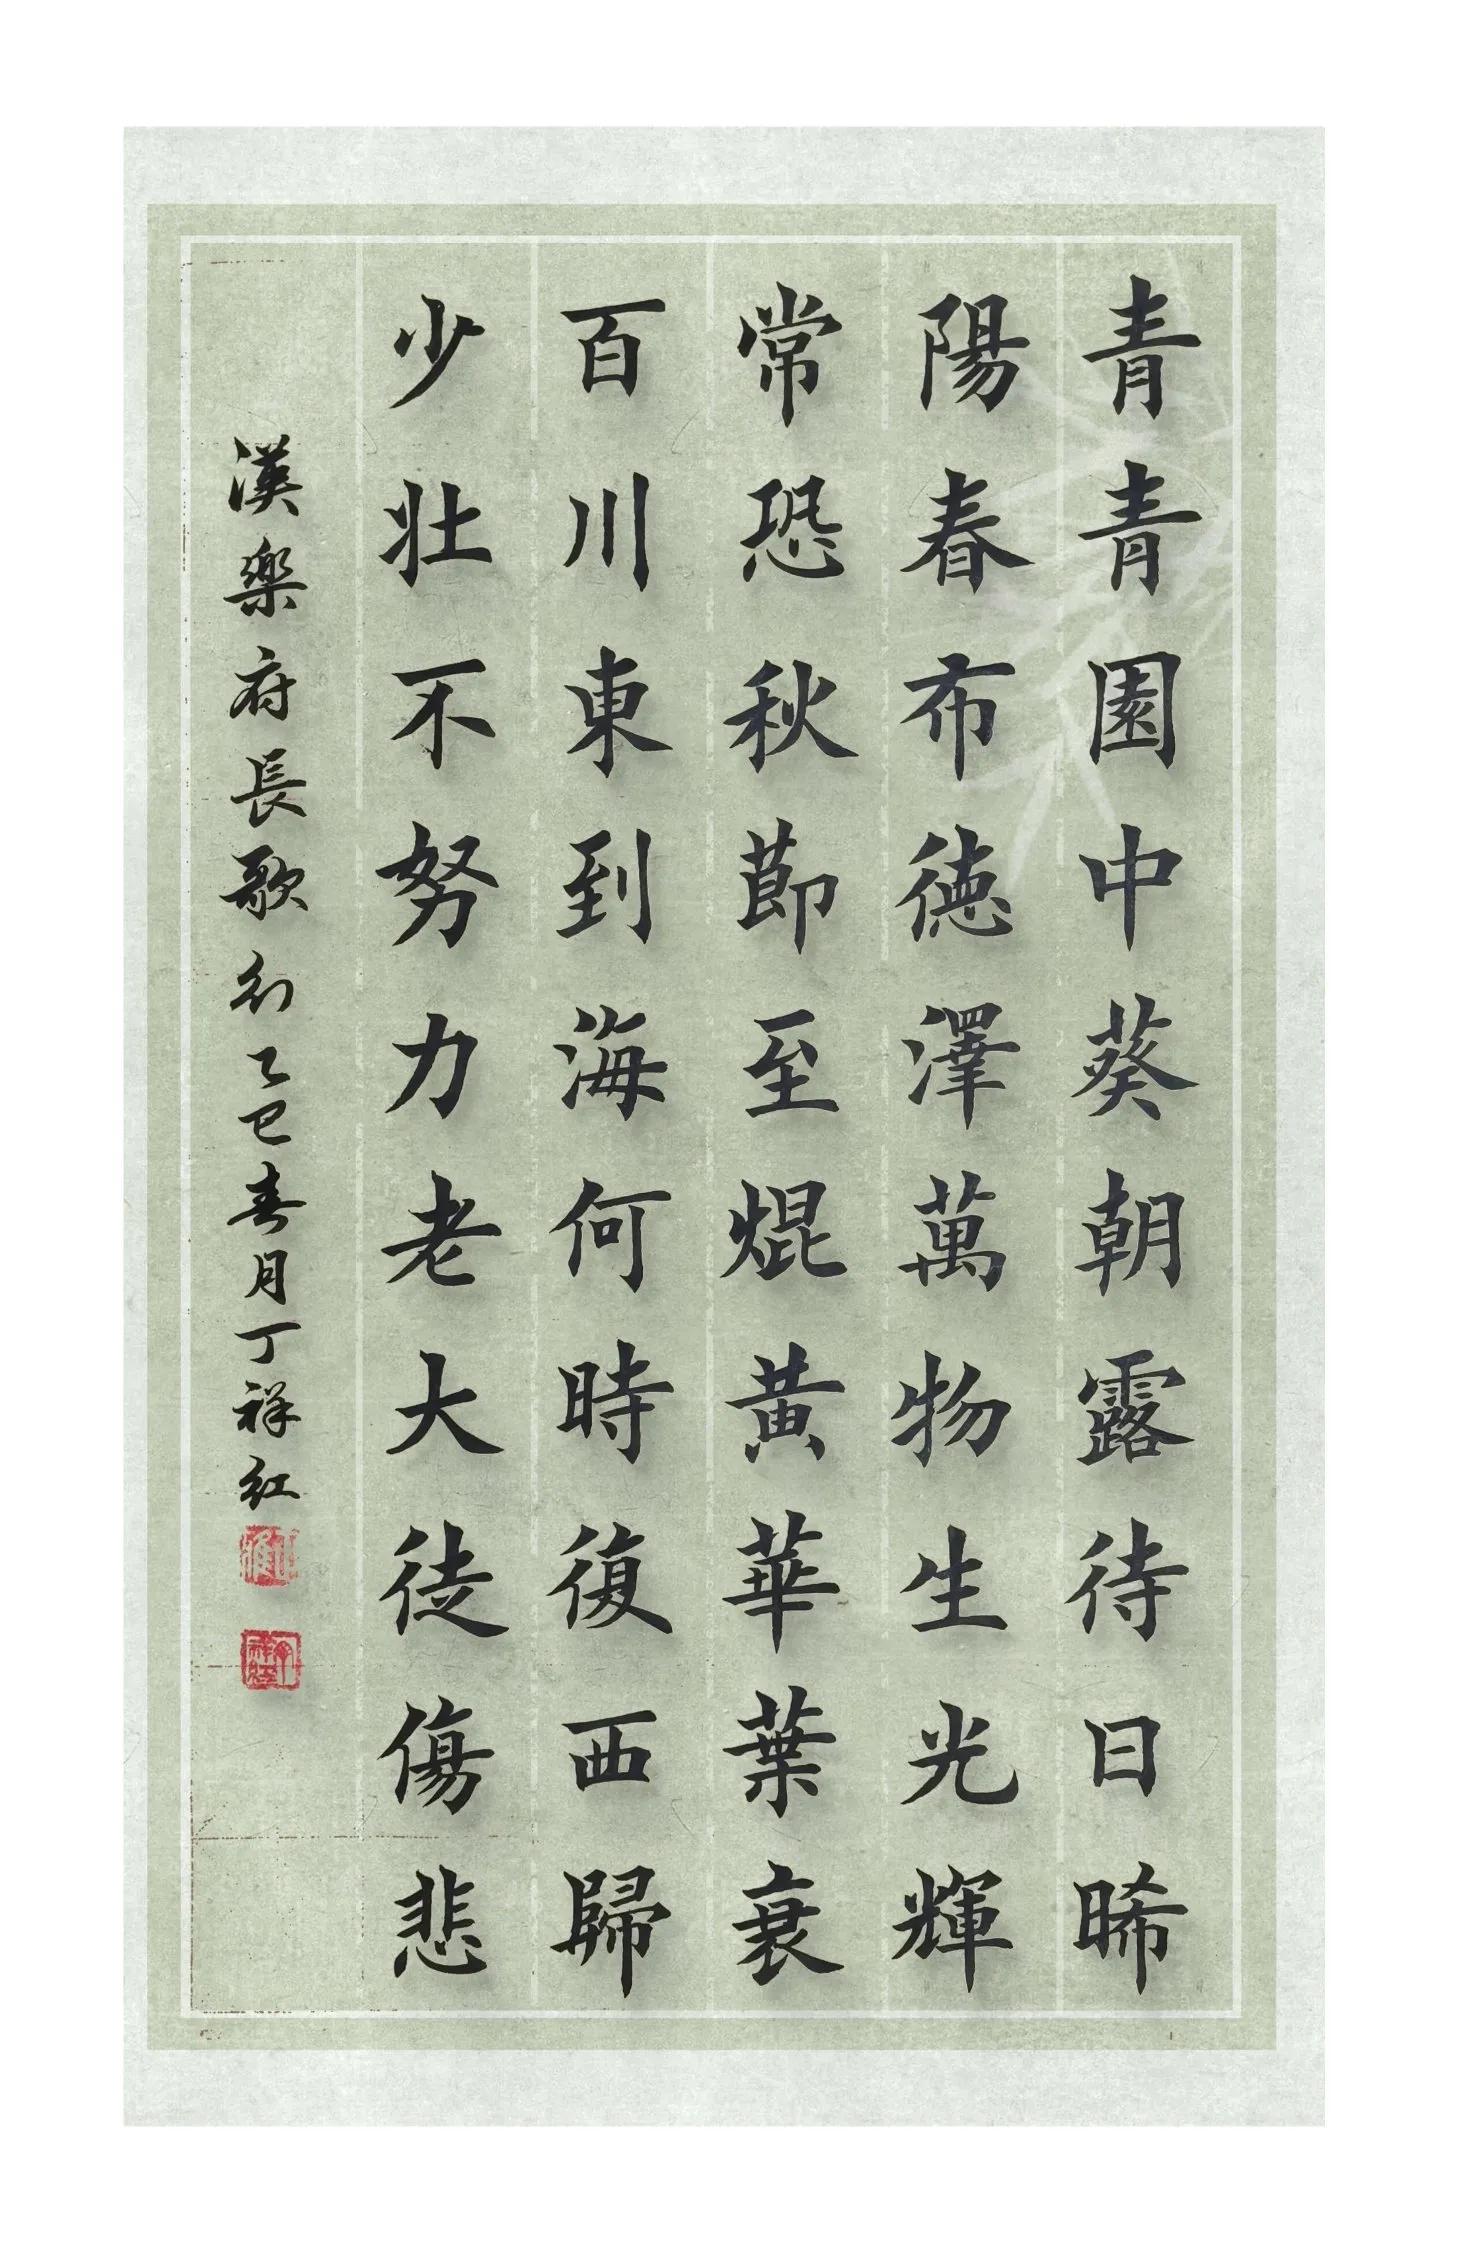 青青園中葵朝露待日晞
陽春布德澤萬物生光輝
常恐秋節至焜黃華葉衰
百川東到海何時復西歸
少壯不努力老大徒傷悲
漢樂府長歌行乙巳春月丁祥紅